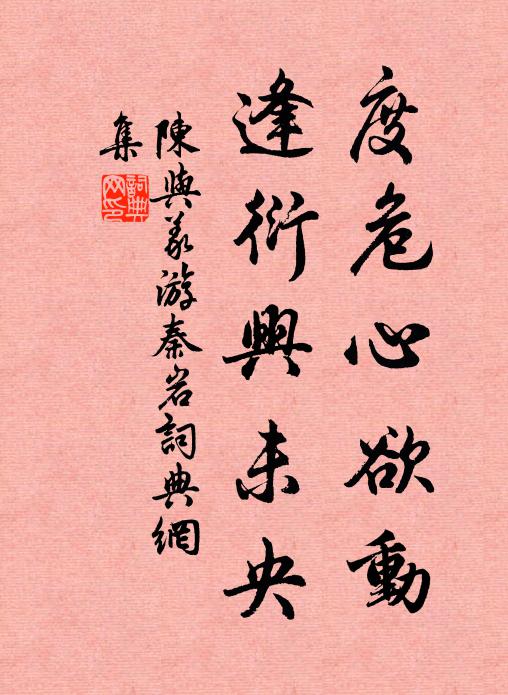 度危心欲動
逢衍興未央
陳與義游秦岩詞典網
集
詞典
网印